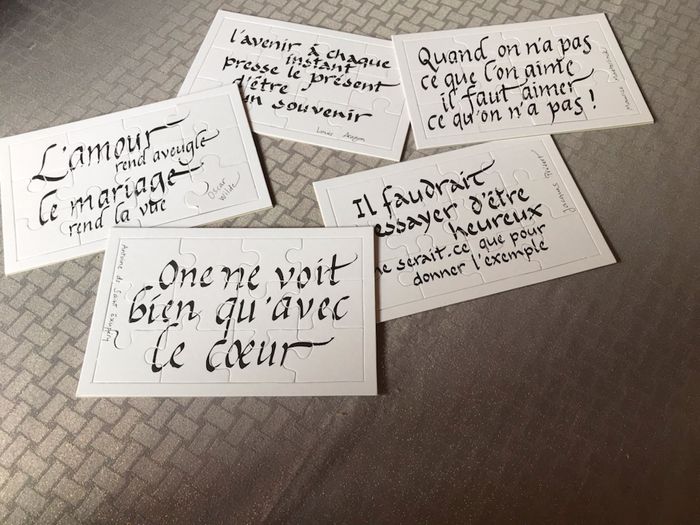 l'avenir à chaque
instant
presse le présent
d'être
un souvenir
Louis Aragon
Quand on n'a pas
ce que l'on aime
il faut aimer
ce qu'on n'a pas !
L'amour
rend aveugle
le mariage
rend la vue
Oscar
Wilde
Il faudrait
essayer d'être
heureux
ne serait-ce que pour
donner l'exemple
Jacques Prévert
Antoine de Saint Exupéry
One ne voit
bien qu'avec
le cœur